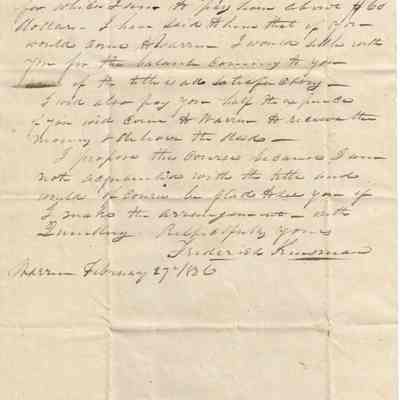 for which I was to pay him above $60
dollars - I have said to him that if you
would come to Warren I would settle with
you for the balance coming to you
if the title is all satisfactory -
I will also pay you half the expense
if you will come to Warren to receive the
money & deliver the deed -
I propose this course because I am
not acquainted with the title and
would of course be glad to see you if
I make the arrangement - with
Respectfully yours
Frederick Kinsman
Warren February 27th 1836